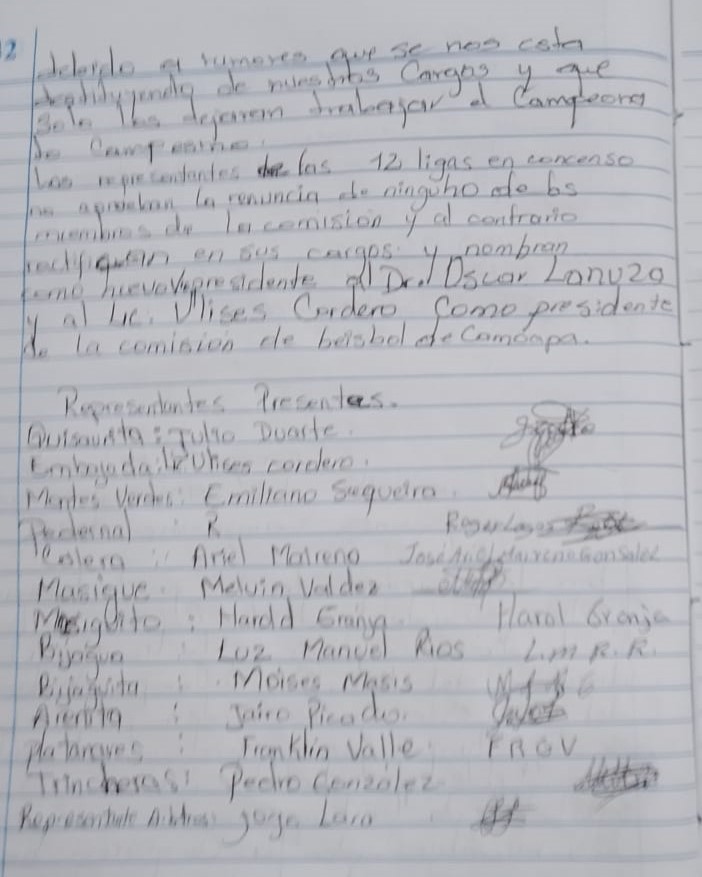 2
debido a rumores que se nos esta
destituyendo de nuestros Cargos y que
Solo los dejaran trabajar el Campeona
to Campesino.
Los representantes de las 12 ligas en concenso
no aprueban la renuncia de ninguno de los
miembros de la comision y al contrario
rectifican en sus cargos y nombran
como nuevo Vicepresidente al Dr. Oscar Lanuza
y al Lic. Ulises Cordero Como presidente
de la comision de beisbol de Camoapa.
Representantes Presentes.
Quisaurita: Julio Duarte.
Embajada: Lic Ulices cordero.
Montes Verdes: Emiliano Sequeira.
Pedernal : R
Calera : Ariel Maireno José Ariel Maireno Gonsalez
Masigue Melvin Valdez
Masiguito : Harold Granja Harol Granja
Bijagua : Luz Manuel Rios L.m R. R.
Bijaguita : Moises Masis
Arenita : Jairo Picado.
Platanares : Franklin Valle FRGV
Trincheras: Pedro Gonzalez
Representante Arbitros: Jorge Lara